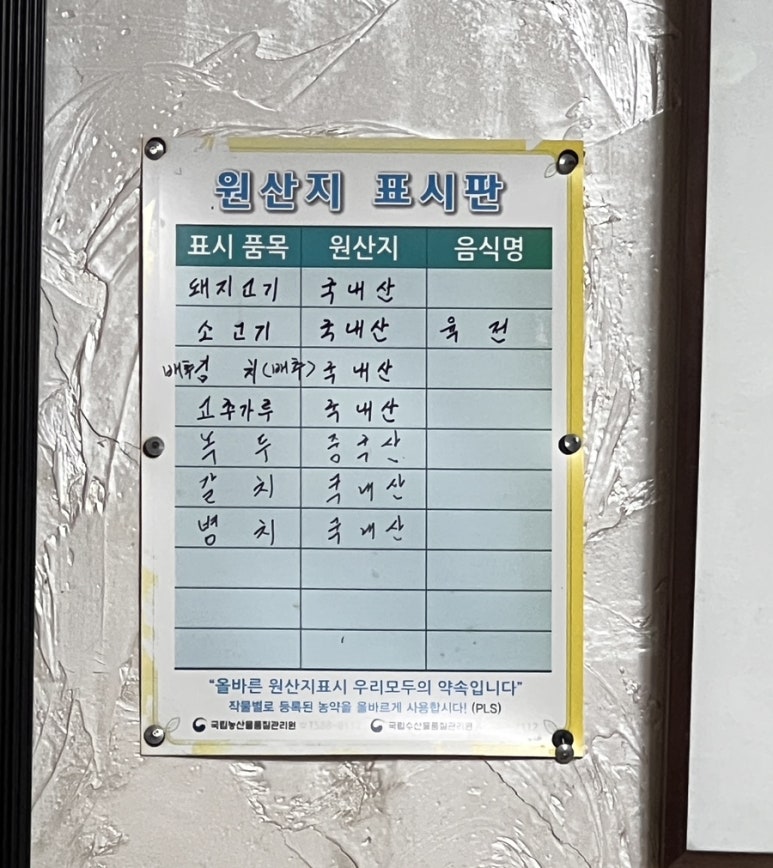 원산지 표시판
표시 품목 원산지 음식명
돼지고기 국내산
소고기 국내산 육전
배추김치(배추) 국내산
고추가루 국내산
녹두 중국산
갈치 국내산
병치 국내산
"올바른 원산지표시 우리모두의 약속입니다"
작물별로 등록된 농약을 올바르게 사용합시다! (PLS)
국립농산물품질관리원 국립수산물품질관리원